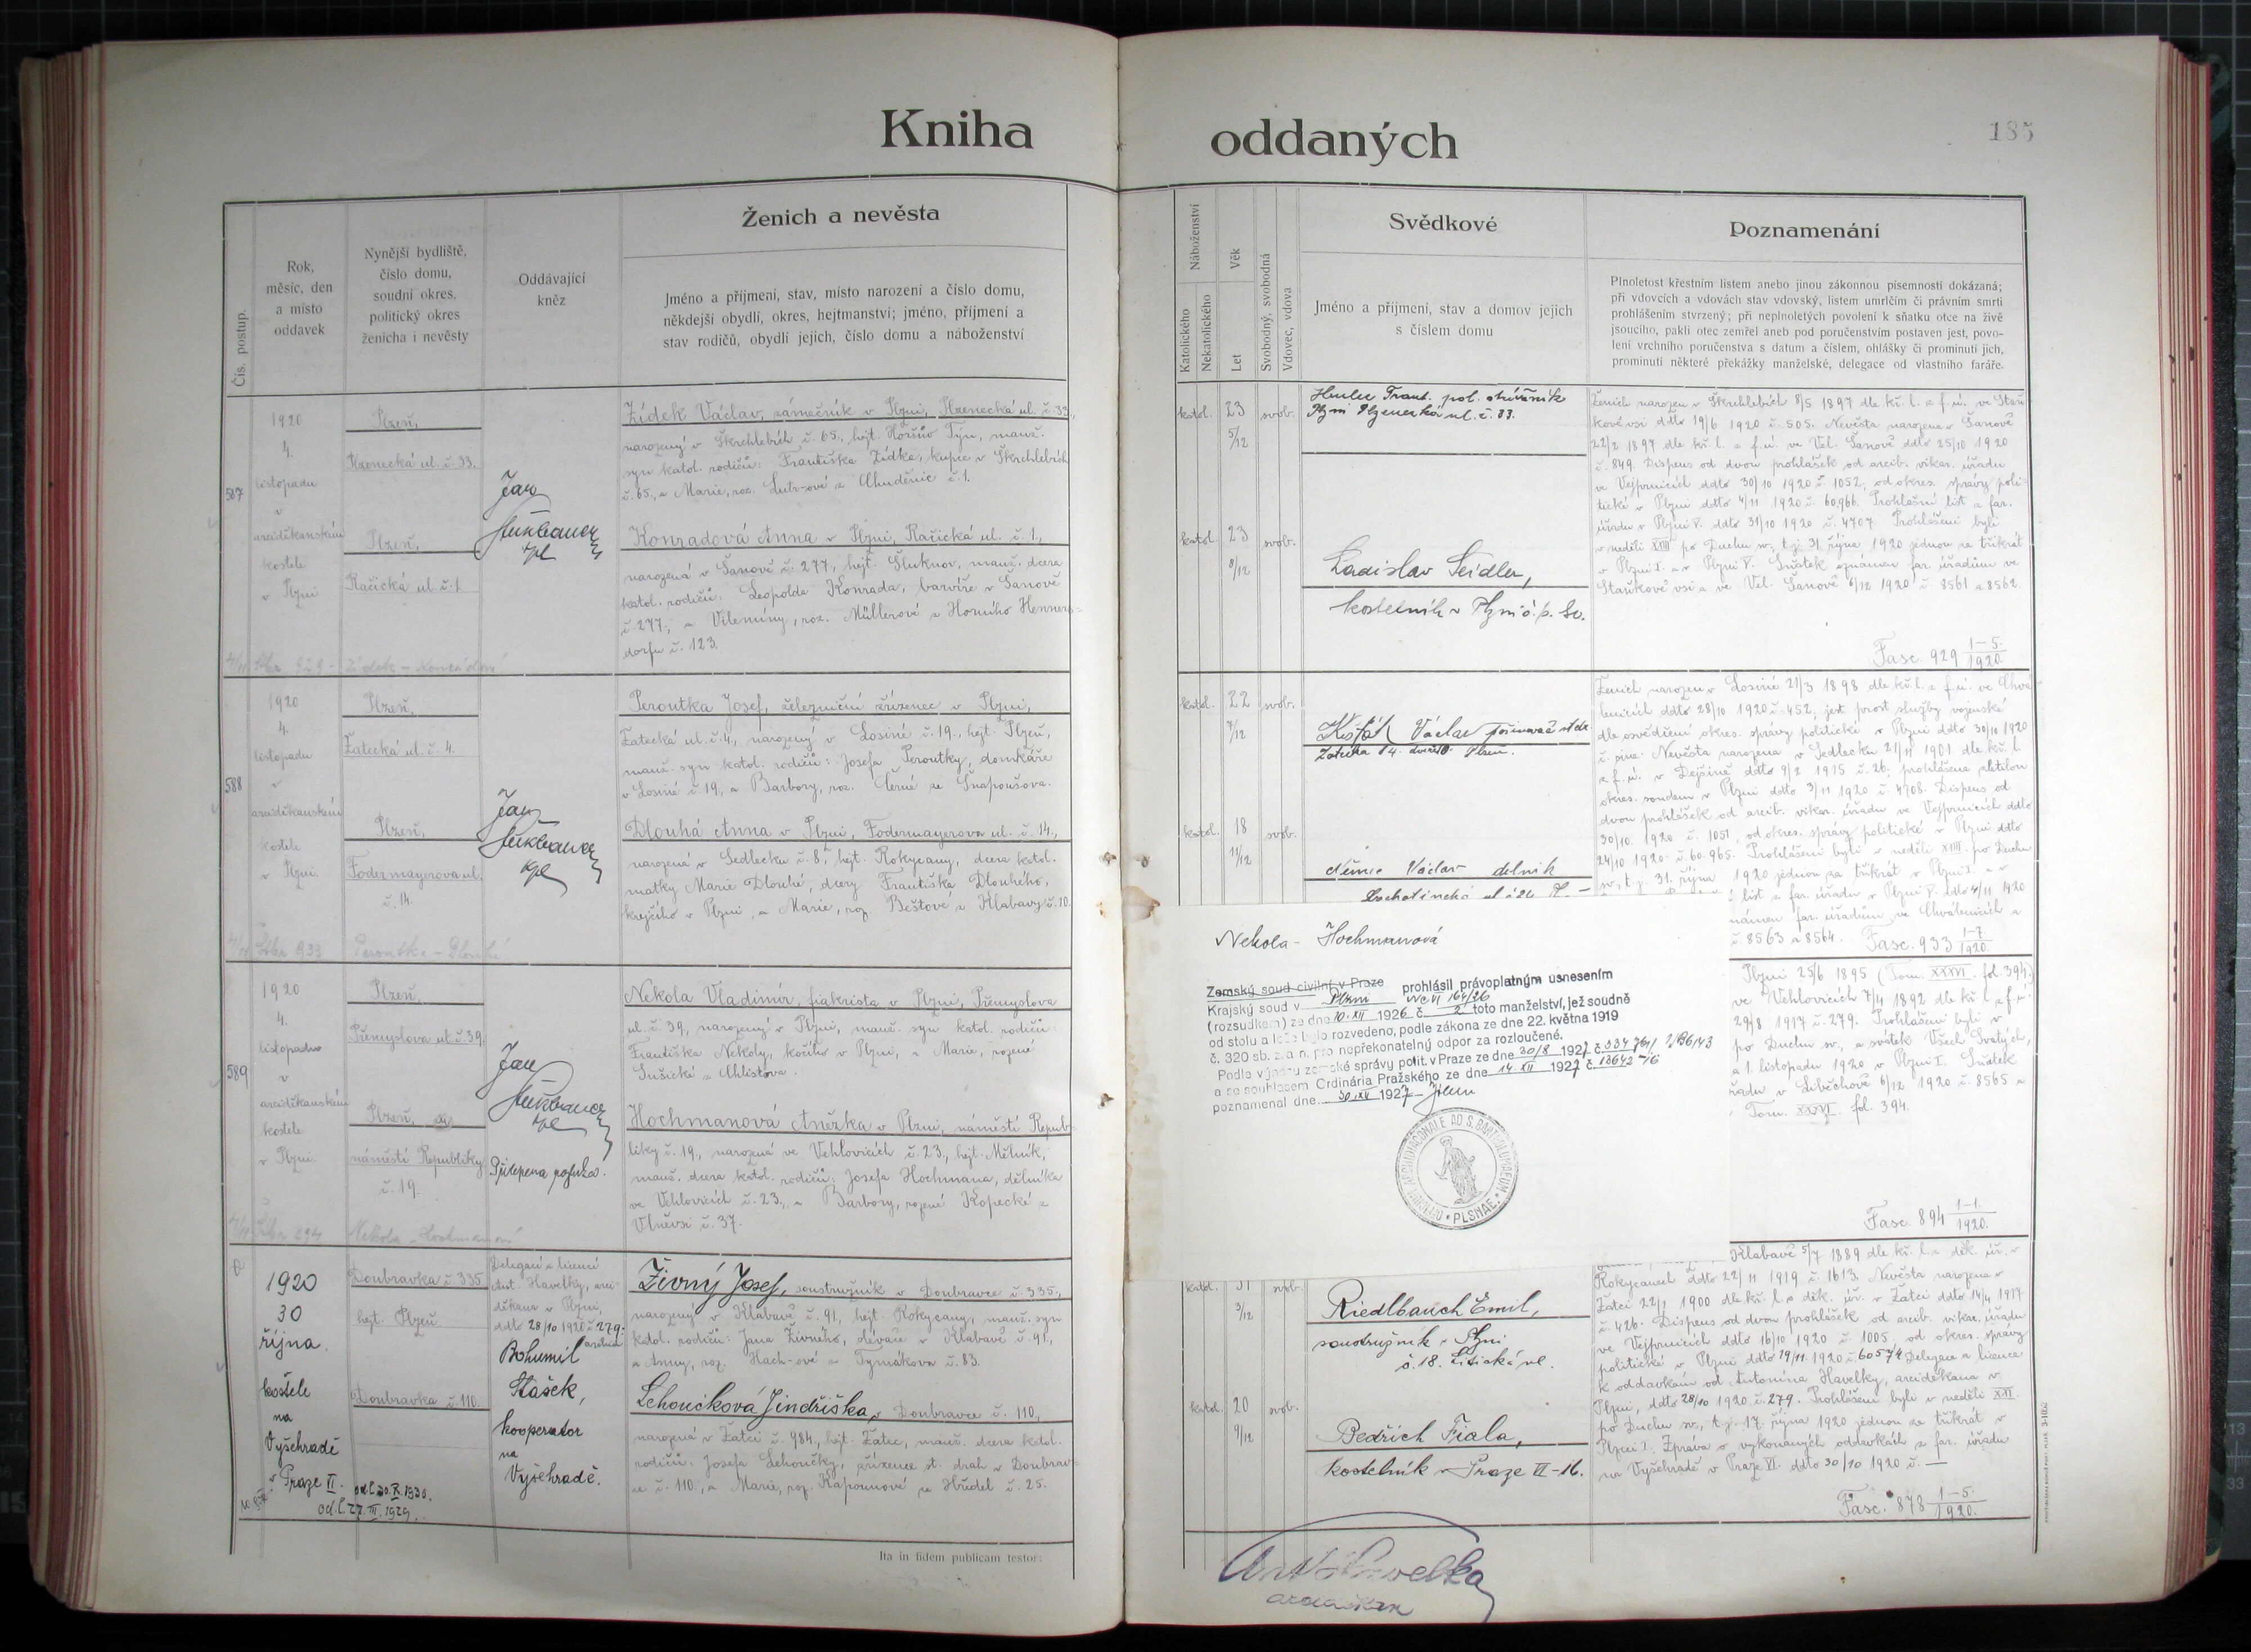 Kniha oddaných
185
Čís. postup.
Rok,
měsíc, den
a místo
oddavek
Nynější bydliště,
číslo domu,
soudní okres,
politický okres
ženicha i nevěsty
Oddávající
kněz
Ženich a nevěsta
Jméno a příjmení, stav, místo narození a číslo domu,
někdejší obydlí, okres, hejtmanství; jméno, příjmení a
stav rodičů, obydlí jejich, číslo domu a náboženství
Náboženství
Katolického
Nekatolického
Věk
Let
Svobodný, svobodná
Vdovec, vdova
Svědkové
Jméno a příjmení, stav a domov jejich
s číslem domu
Poznamenání
Plnoletost křestním listem anebo jinou zákonnou písemností dokázaná;
při vdovcích a vdovách stav vdovský, listem umrlčím či právním smrti
prohlášením stvrzený; při neplnoletých povolení k sňatku otce na živě
jsoucího, pakli otec zemřel aneb pod poručenstvím postaven jest, povo-
lení vrchního poručenstva s datum a číslem, ohlášky či prominutí jich,
prominutí některé překážky manželské, delegace od vlastního faráře.
587
1920
4.
listopadu
v
arciděkanském
kostele
v Plzni
Plzeň,
Plzenecká ul. č. 33.
Plzeň,
Račická ul. č. 1
Jan
kpl
Žídek Václav, zámečník v Plzni, Plzenecká ul. č. 33,
narozený v Škrchlebích č. 65., hejt. Horšův Týn, manž.
syn katol. rodičů: Františka Žídka, kupce v Škrchlebích
č. 65., a Marie, roz. z Chuděnic č. 1.
Konradová Anna v Plzni, Račická ul. č. 1.,
narozená v Šanově č. 277, hejt. Šluknov, manž. dcera
katol. rodičů: Leopolda Konrada, barvíře v Šanově
č. 277., a Vilemíny, roz. Müllerové z Horního Henners-
dorfu č. 123.
katol. 23 5/12 svob.
katol. 23 8/12 svob.
Frant. pol. strážník
Plzni Plzenecká ul. č. 33.
Ladislav Seidler,
kostelník v Plzni č. p. 60.
Ženich narozen v Škrchlebích 8/5 1897 dle kř. l. z f. ú. ve Staň-
kově vsi ddto 19/6 1920 č. 505. Nevěsta narozena v Šanově
22/2 1897 dle kř. l. z f. ú. ve Vel. Šanově ddto 25/10 1920
č. 849. Dispens od dvou prohlášek od arcib. vikar. úřadu
ve Vejprnicích ddto 30/10 1920 č. 1052, od okres. správy poli-
tické v Plzni ddto 4/11 1920 č. 60.966. Prohlašní list z far.
úřadu v Plzni V. ddto 31/10 1920 č. 4707. Prohlášeni byli
v neděli XXIII. po Duchu sv., t. j. 31. října 1920 jednou za třikrát
v Plzni I. a v Plzni V. Sňatek oznámen far. úřadům ve
Staňkově vsi a ve Vel. Šanově 6/12 1920 č. 8561 a 8562.
Fasc. 929 1-5/1920
929 - Žídek - Konradová
588
1920
4.
listopadu
v
arciděkanském
kostele
v Plzni
Plzeň,
Žatecká ul. č. 4.
Plzeň,
Fodermayerova ul.
č. 14.
Jan
kpl
Peroutka Josef, železniční zřízenec v Plzni,
Žatecká ul. č. 4., narozený v Losiné č. 19., hejt. Plzeň,
manž. syn katol. rodičů: Josefa Peroutky, domkáře
v Losiné č. 19, a Barbory, roz. Černé ze Šnapoušova.
Dlouhá Anna v Plzni, Fodermayerova ul. č. 14.,
narozená v Sedlecku č. 8, hejt. Rokycany, dcera katol.
matky Marie Dlouhé, dcery Františka Dlouhého,
krejčího v Plzni, a Marie, roz. Beštové z Klabavy č. 10.
katol. 22 7/12 svob.
katol. 18 11/12 svob.
Václav
Žatecká č 4. Plzeň.
Němec Václav dělník
Ženich narozen v Losiné 21/3 1898 dle kř. l. z f. ú. ve Chvá-
lenicích ddto 28/10 1920 č. 452, jest prost služby vojenské
dle osvědčení okres. správy politické v Plzni ddto 30/10 1920
Nevěsta narozena v Sedlecku 21/11 1901 dle kř. l.
z f. ú. v Dejšině ddto 9/2 1915 č. 26, prohlášena zletilou
okres. soudem v Plzni ddto 3/11 1920 č. 4708. Dispens od
dvou prohlášek od arcib. vikar. úřadu ve Vejprnicích ddto
30/10. 1920 č. 1051, od okres. správy politické v Plzni ddto
24/10 1920 č. 60.965. Prohlášeni byli v neděli XXIII. po Duchu
sv., t. j. 31. října 1920 jednou za třikrát v Plzni I. a v
list z far. úřadu v Plzni V. ddto 4/11 1920
známen far. úřadům ve Chválenicích a
č. 8563 a 8564. Fasc. 933 1-7/1920.
933 Peroutka - Dlouhá
589
1920
4.
listopadu
v
arciděkanském
kostele
v Plzni.
Plzeň,
Přemyslova ul. č. 39.
Plzeň,
náměstí Republiky
č. 19.
Jan
kpl
Nekola Vladimír, fiakrista v Plzni, Přemyslova
ul. č. 39, narozený v Plzni, manž. syn katol. rodičů:
Františka Nekoly, kočího v Plzni, a Marie, rozené
Sušické z Chlistova.
Hochmanová Anežka v Plzni, náměstí Repub-
liky č. 19., narozená ve Vehlovicích č. 23., hejt. Mělník,
manž. dcera katol. rodičů: Josefa Hochmana, dělníka
ve Vehlovicích č. 23., a Barbory, rozené Kopecké z
Vlněvsi č. 37.
Nekola - Hochmanová
Zemský soud civilní v Praze prohlásil právoplatným usnesením
Krajský soud v Plzni Nc VI 164/26
(rozsudkem) ze dne 10. XII 1926 č. 2 toto manželství, jež soudně
od stolu a lože bylo rozvedeno, podle zákona ze dne 22. května 1919
č. 320 sb. z. a n. pro nepřekonatelný odpor za rozloučené.
Podle výnosu zemské správy polit. v Praze ze dne 30/8 1927 č.
a se souhlasem Ordinária Pražského ze dne 14. XII 1927 č. 13642
poznamenal dne 30. XII 1927
AD S. BARTHOLOMAEUM • PLSNAE •
Plzni 25/6 1895 (Tom. XXXVI. fol. 394.)
ve Vehlovicích 7/4 1892 dle kř. l. z f. ú.
29/8 1917 č. 279. Prohlášeni byli v
po Duchu sv., a svátek Všech Svatých,
a 1. listopadu 1920 v Plzni I. Sňatek
řadu v Liběchově 6/12 1920 č. 8565 a
Tom. XXXVI. fol. 394.
Fasc. 894 1-1./1920.
894 Nekola - Hochmanová
1920
30
října.
kostele
na
Vyšehradě
v Praze VI.
Doubravka č. 335
hejt. Plzeň
Doubravka č. 110.
Delegací a licencí
Ant. Havelky, arci-
děkana v Plzni,
ddto 28/10 1920 č. 279.
Bohumil
Stašek,
kooperator
na
Vyšehradě.
Živný Josef, soustružník v Doubravce č. 335.,
narozený v Klabavě č. 91, hejt. Rokycany, manž. syn
katol. rodičů: Jana Živného, slévače v Klabavě č. 91.,
a Anny, roz. Hach-ové z Tymákova č. 83.
Lehoučková Jindřiška, v Doubravce č. 110,
narozená v Žatci č. 984., hejt. Žatec, manž. dcera katol.
rodičů: Josefa Lehoučky, zřízence st. drah v Doubrav-
ce č. 110., a Marie, roz. Kapounové ze Hředel č. 25.
katol. 31 3/12 svob.
katol. 20 9/12 svob.
Riedlbauch Emil,
soustružník v Plzni
č. 18. ul.
Bedřich Fiala,
kostelník v Praze VI-16.
Klabavě 5/7 1889 dle kř. l. z děk. úř. v
Rokycanech ddto 22/11 1919 č. 1613. Nevěsta narozena v
Žatci 22/1 1900 dle kř. l. z děk. úř. v Žatci ddto 14/4 1917
č. 426. Dispens od dvou prohlášek od arcib. vikar. úřadu
ve Vejprnicích ddto 16/10 1920 č. 1005, od okres. správy
politické v Plzni ddto 19/11. 1920 č. 60574 Delegace a licence
k oddavkám od Antonína Havelky, arciděkana v
Plzni, ddto 28/10 1920 č. 279. Prohlášeni byli v neděli XXI.
po Duchu sv., t. j. 17. října 1920 jednou za třikrát v
Plzni I. Zpráva o vykonaných oddavkách z far. úřadu
na Vyšehradě v Praze VI. ddto 30/10 1920 č. —
Fasc. 878 1-5/1920.
Ita in fidem publicam testor:
Ant. Havelka
arciděkan